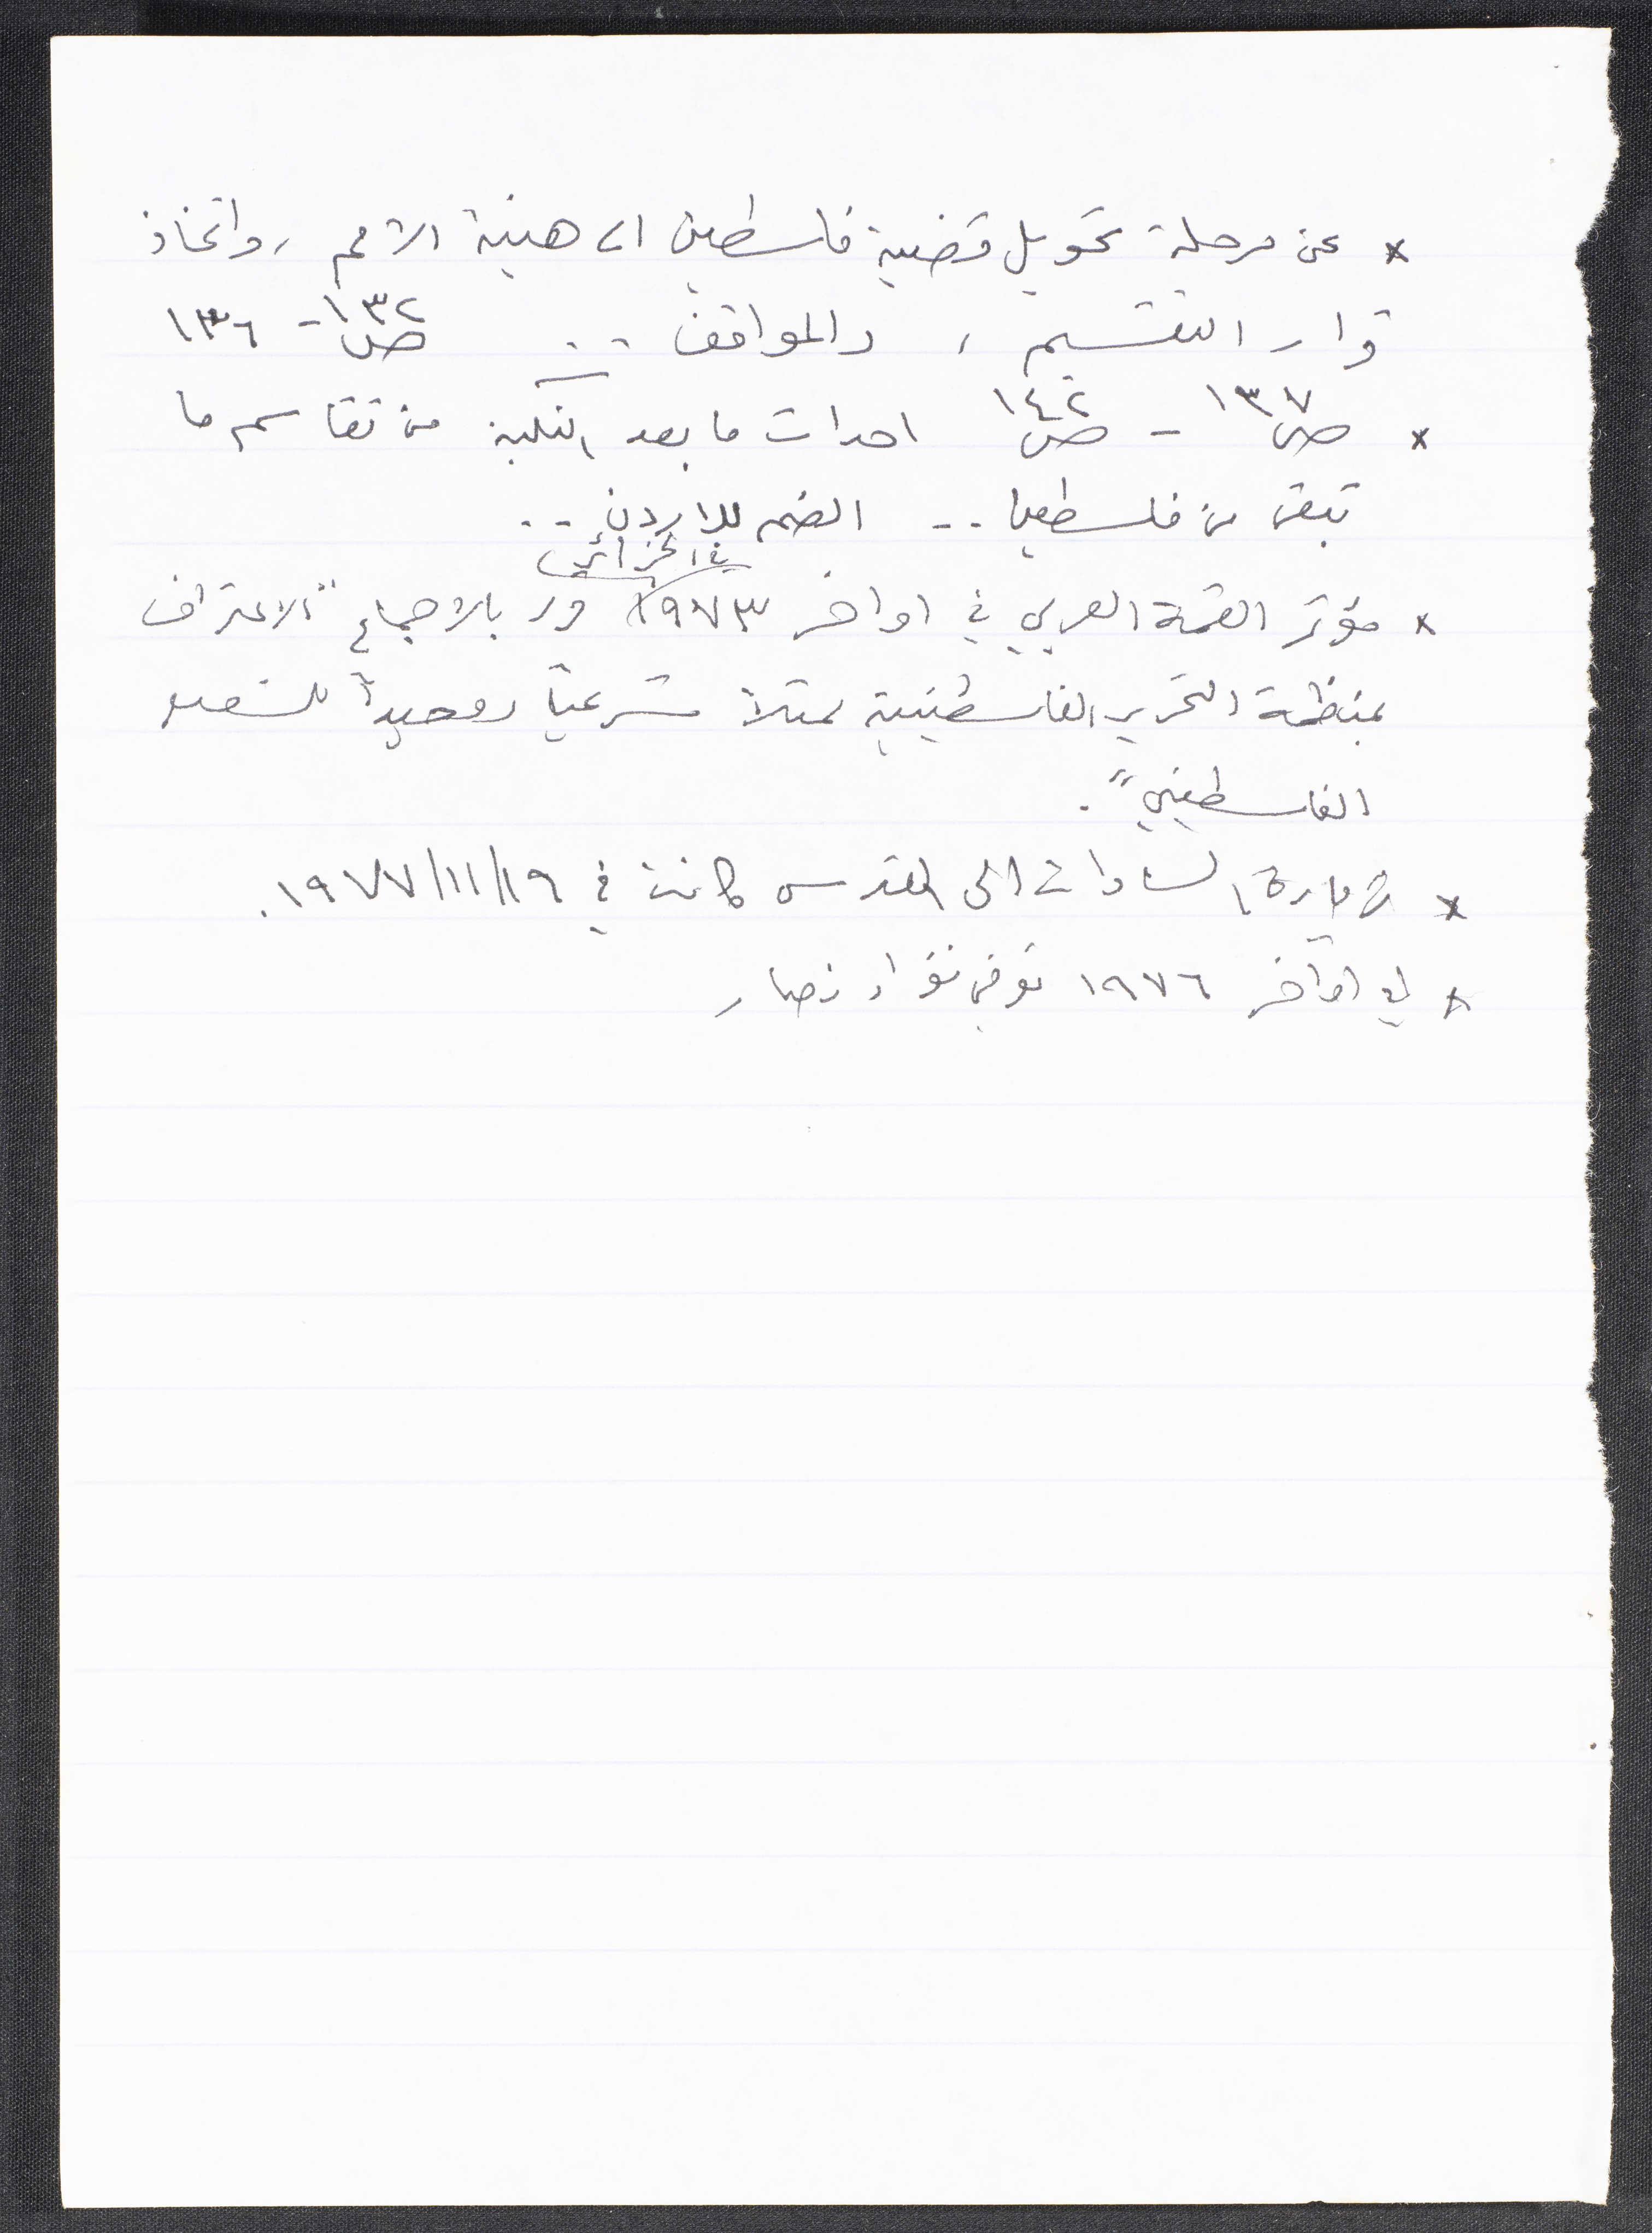 * عن مرحلة تحويل قضية فلسطين الى هيئة الامم ، واتخاذ
قرار التقسيم ، والمواقف .. ص١٣٢ - ١٣٦
* ص١٣٧ - ص١٤٢ احداث ما بعد النكبة من تقاسم ما
تبقى من فلسطين .. الضم للاردن ..
في الجزائر
* مؤتمر القمة العربي في اواخر ١٩٧٣ قرر بالاجماع "الاعتراف
بمنظمة التحرير الفلسطينية ممثلاً شرعياً ووحيداً للشعب
الفلسطيني".
* زيارة السادات الى القدس كانت في ١٩/١١/١٩٧٧.
* في اواخر ١٩٧٦ توفي فؤاد نصار